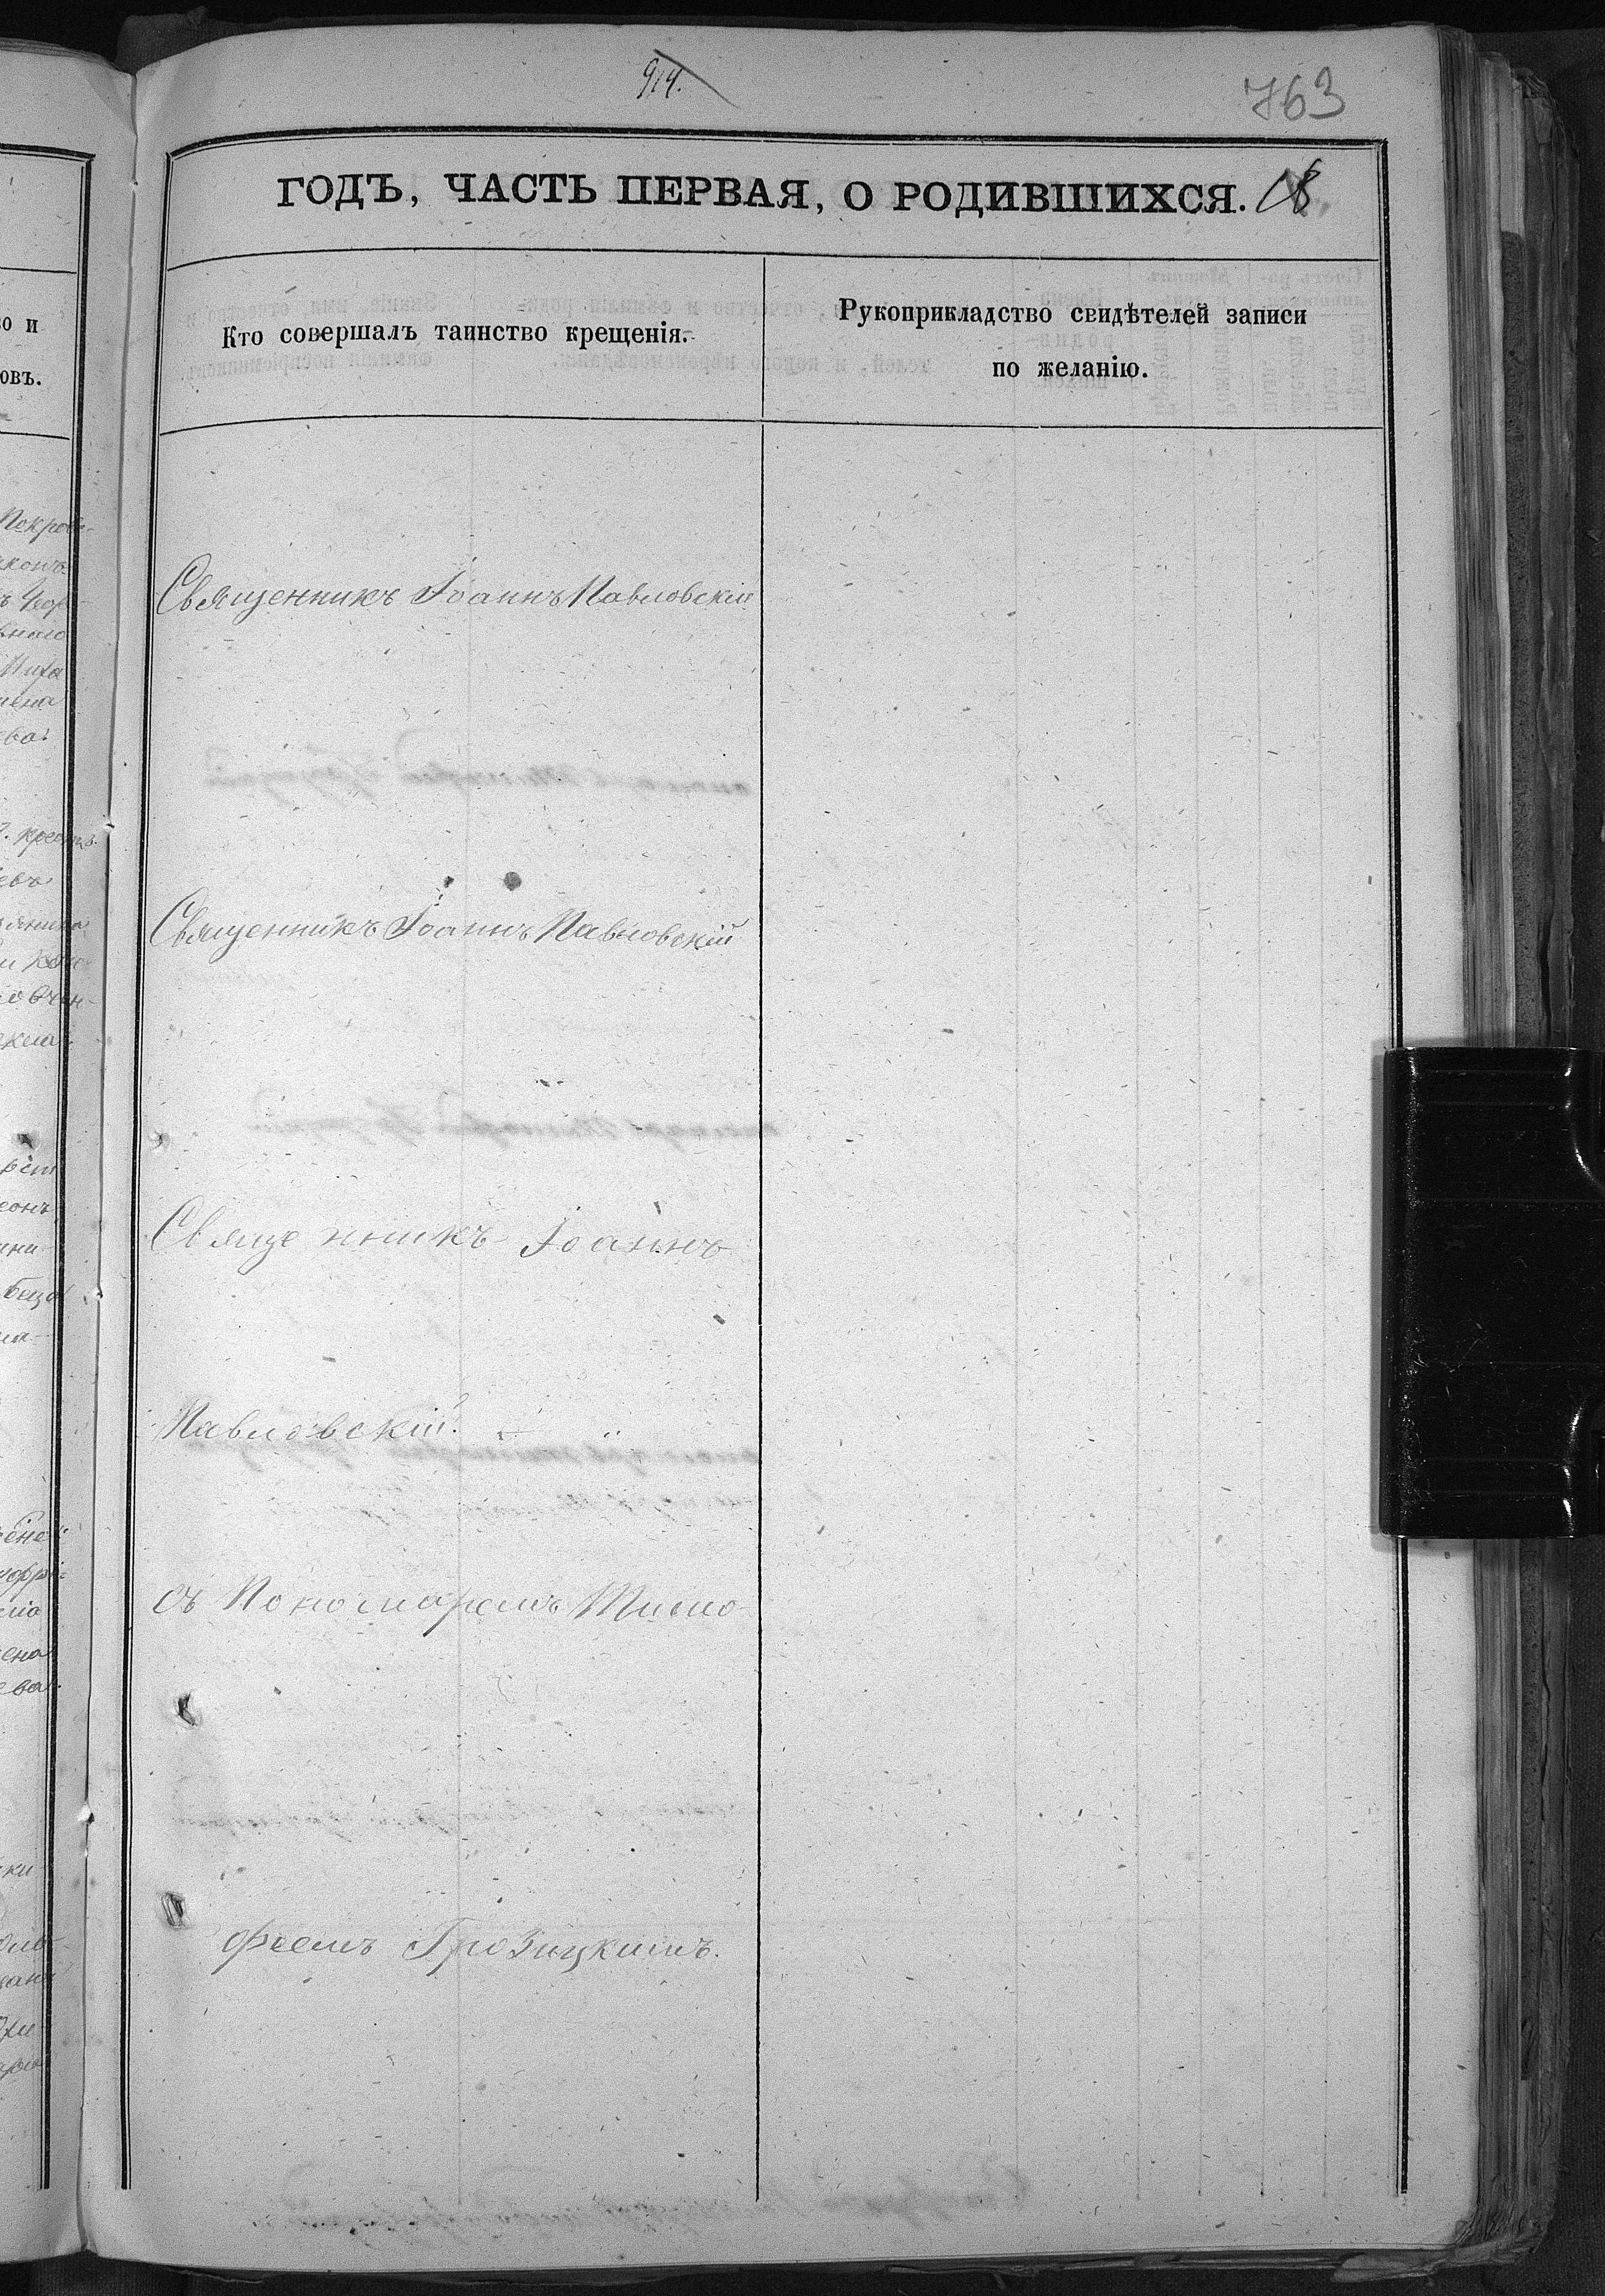 914.
763
ГОДЪ, ЧАСТЬ ПЕРВАЯ, О РОДИВШИХСЯ. 18
Кто совершалъ таинство крещенія.
Рукоприкладство свидѣтелей записи
по желанію.
о и
овъ.
Священникъ Іоаннъ Павловскій
Священникъ Іоаннъ Павловскій
Священникъ Іоаннъ
Павловскій
съ Пономаремъ Тимо-
феемъ Грозицкимъ.